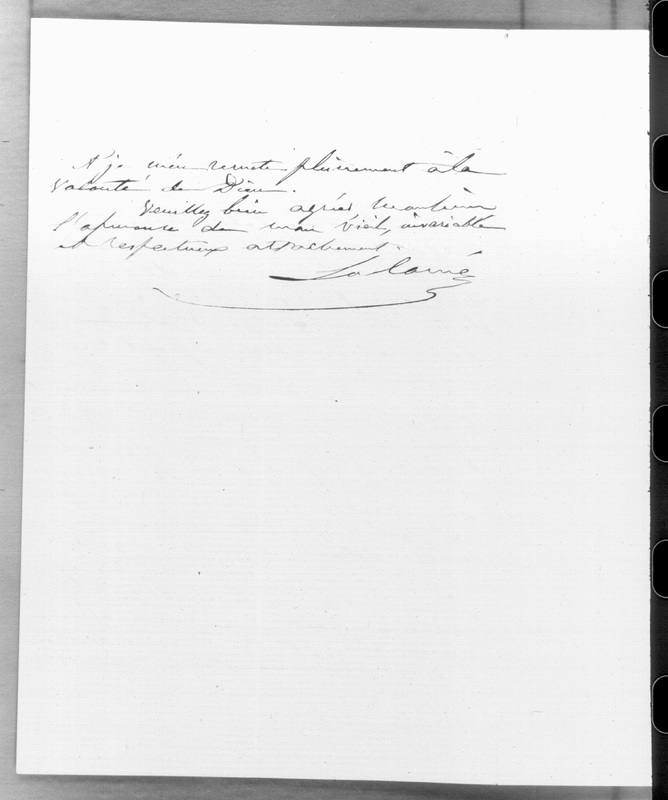 & je m'en remets pleinement à la
volonté de Dieu.
Veuillez bien agréer Monsieur
l'assurance de mon vieil, invariable
et respectueux attachement.